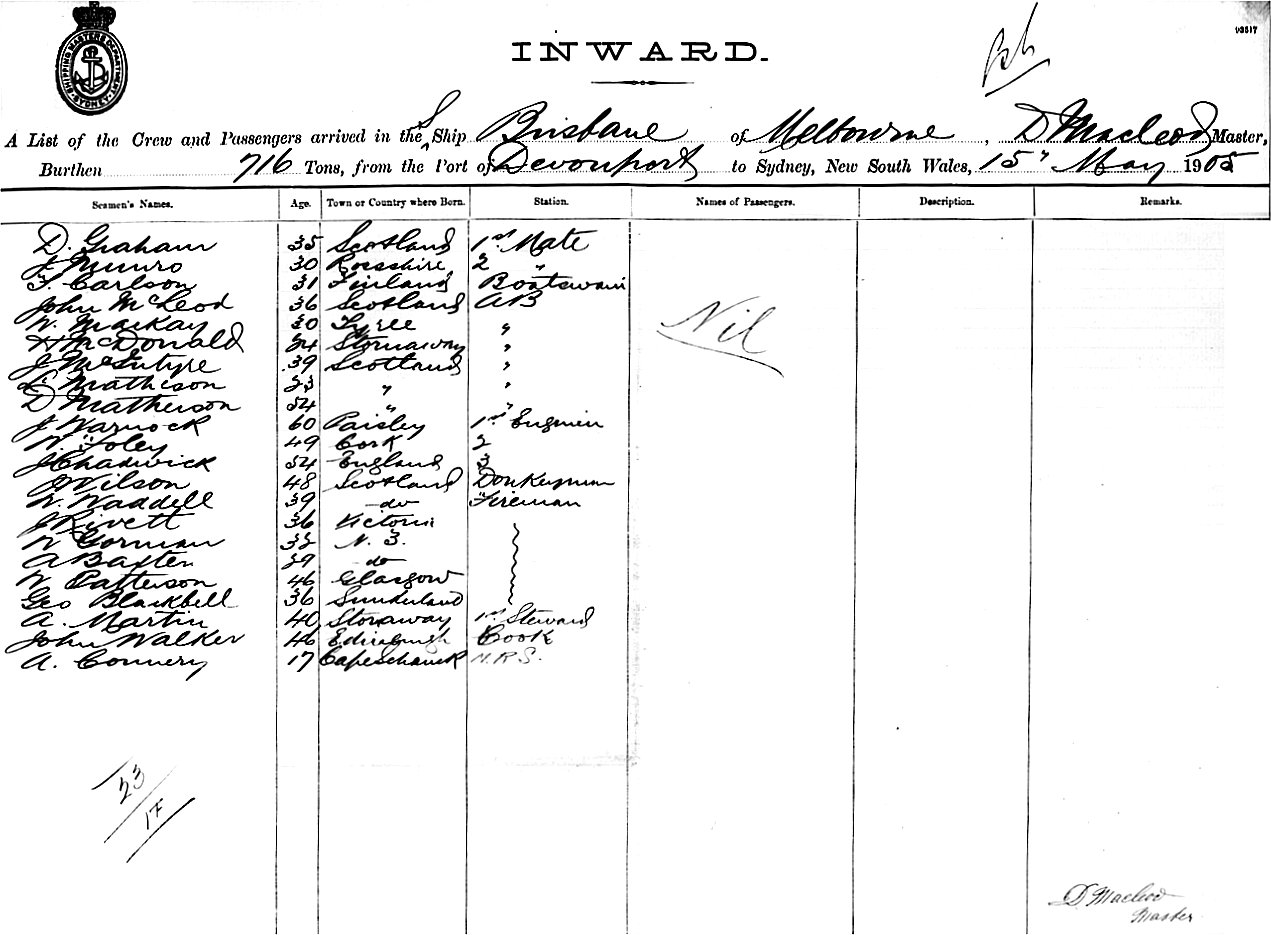 SHIPPING MASTERS DEPARTMENT SYDNEY
INWARD.
A List of the Crew and Passengers arrived in the S Ship Brisbane of Melbourne, D Macleod Master,
Burthen 716 Tons, from the Port of Devonport to Sydney, New South Wales, 15" May 1905
Seamen's Names. Age. Town or Country where Born. Station. Names of Passengers. Description. Remarks.
D. Graham 35 Scotland 1st Mate
J. Munro 30 Rossshire 2 "
F. Carlson 31 Finland Boatswain
John McLeod 36 Scotland AB
W. MacKay 30 Tyree "
Nil
McDonald 24 Stornaway "
J. McIntyre 39 Scotland "
Matheson 23 " "
D Matheson 54 " "
J Warnock 60 Paisley 1st Engineir
W. Foley 49 Cork 2
J Chadwick 54 England 3
J Wilson 48 Scotland Donkeyman
W. Waddell 39 do Fireman
J Rivett 36 Victoria
W Gorman 32 N. Z.
A Baxter 29 do
W Patterson 46 Glasgow
Geo Blackbell 36 Sunderland
A. Martin 40 Storaway 1st Steward
John Walker 46 Edinburgh Cook
A. Connery 17 Capeschanck M.R.S.
23
17
D Macleod
Master